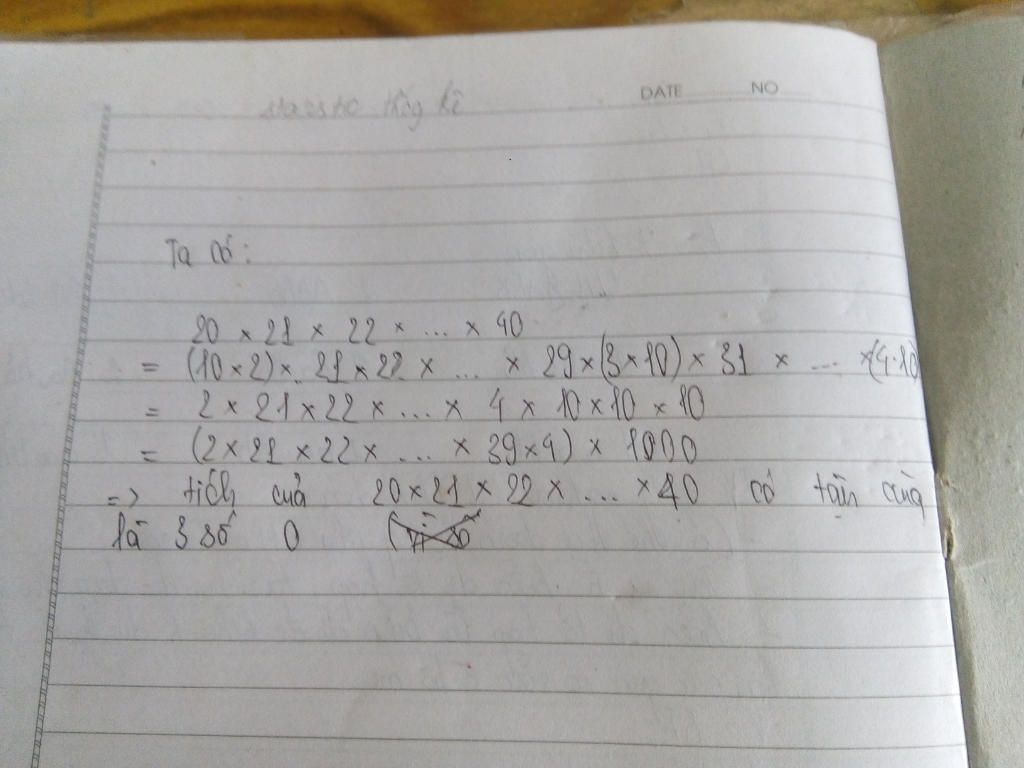 thống kê DATE NO
Ta có:
20 × 21 × 22 × ... × 40
= (10 × 2) × 21 × 22 × ... × 29 × (3 × 10) × 31 × ... × (4 · 10)
= 2 × 21 × 22 × ... × 4 × 10 × 10 × 10
= (2 × 21 × 22 × ... × 39 × 4) × 1000
=> tích của 20 × 21 × 22 × ... × 40 có tận cùng
là 3 số 0